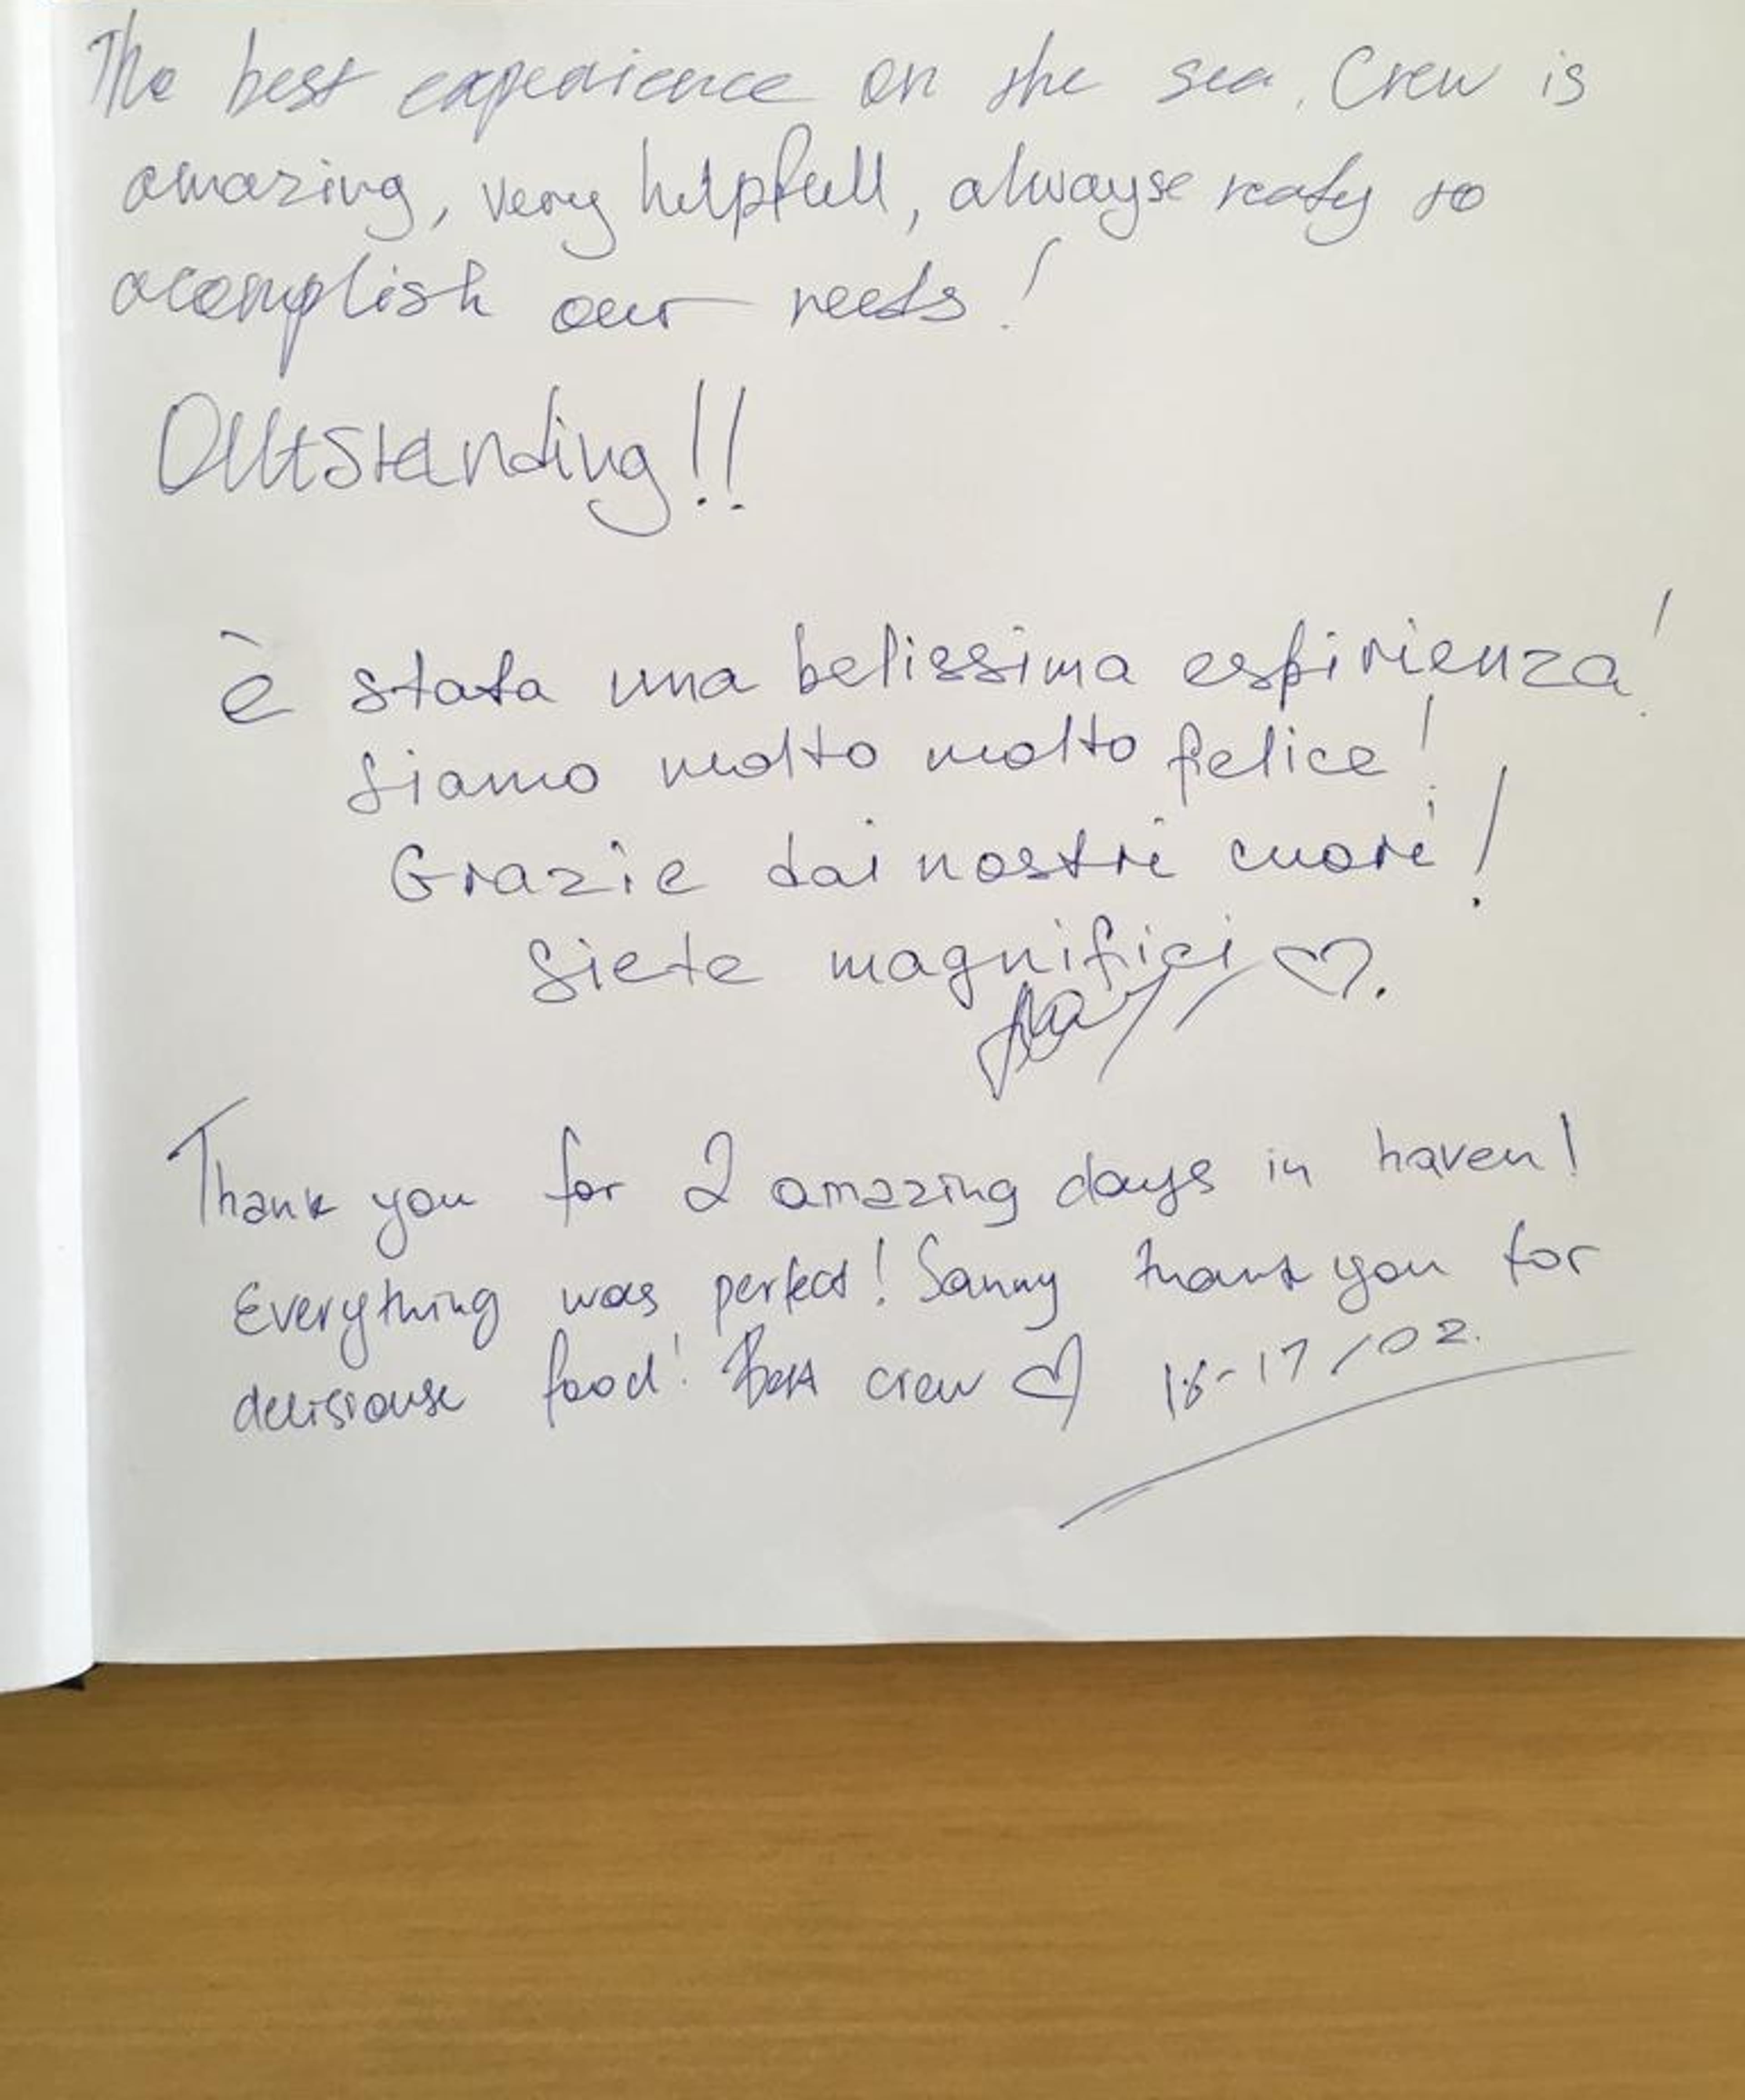 The best expearience on the sea. Crew is
amazing, very helpfull, alwayse ready to
acomplish our needs!
Outstanding!!
è stata una belissima espirienza!
Siamo molto molto felice!
Grazie dai nostri cuori!
Siete magnifici ♡.
Thank you for 2 amazing days in haven!
Everything was perfect! Sanny thank you for
delisiouse food! Best crew ♡ 16-17/02.